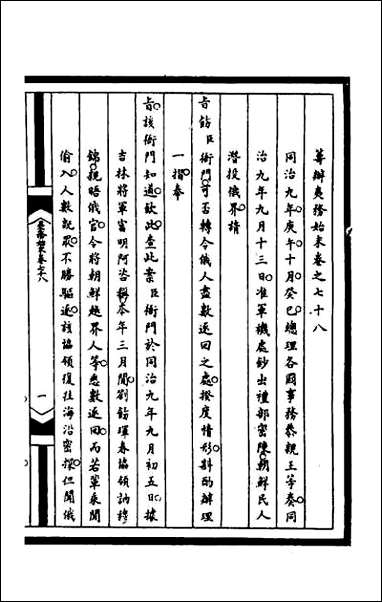 籌辦夷務始末卷之七十八
同治九年庚午十月癸巳總理各國事務恭親王等奏同
治九年九月十三日准軍機處鈔出禮部密陳朝鮮民人
潛投俄界情
一摺奉
旨飭臣衙門可否轉令俄人盡數送回之處揆度情形斟酌辦理
旨該衙門知道欽此查此案臣衙門於同治九年九月初五日據
吉林將軍富明阿咨稱本年三月間劄飭琿春協領訥穆
錦親晤俄官令將朝鮮越界人等悉數送回而若輩乘間
偷入人數既眾不勝驅逐該協領復往海沿密探但聞俄
一